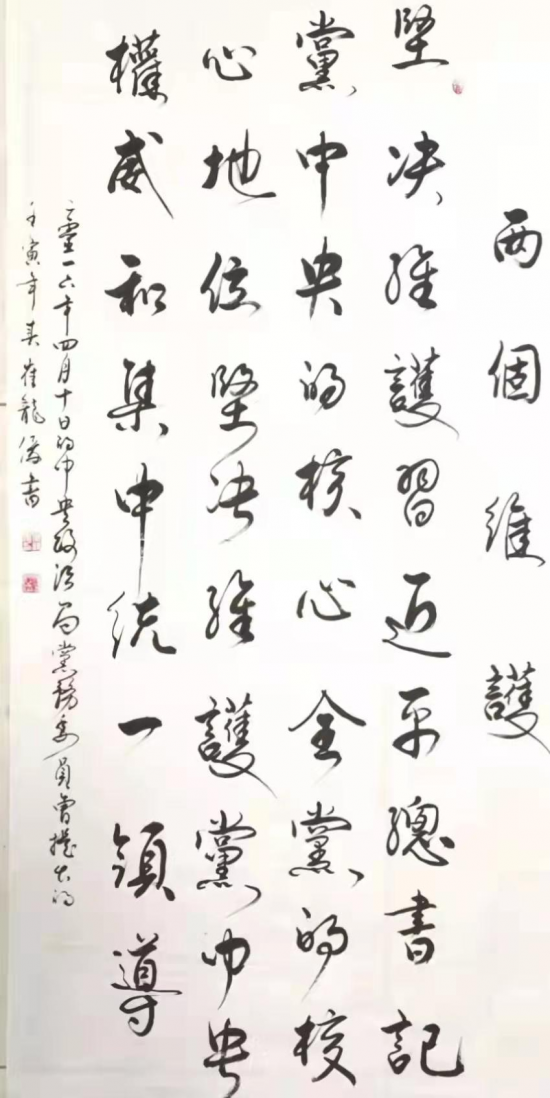 兩個維護
堅決維護習近平總書記
黨中央的核心全黨的核
心地位堅決維護黨中央
權威和集中統一領導
二零一六年四月十日的中央政治局黨務委員會提出的
壬寅年春崔龍儒書